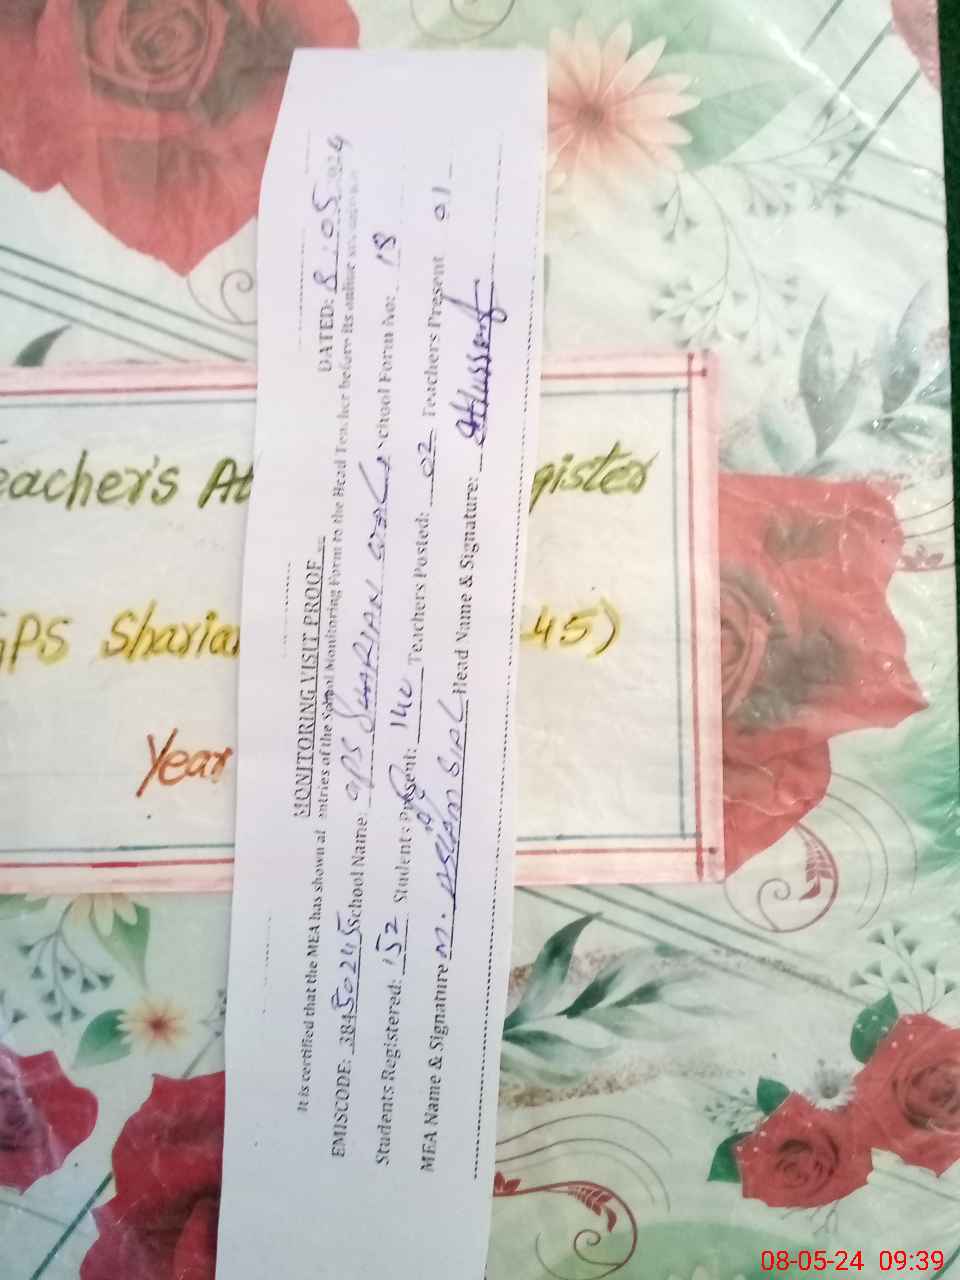 MONITORING VISIT PROOF
DATED: 8.05.2024
It is certified that the MEA has shown al entries of the School Monitoring Form to the Head Teacher before its online
EMISCODE: 38450245 School Name: GPS SHARIAN School Form No: 18
Students Registered: 152 Students Present: 140 Teachers Posted: 02 Teachers Present 01
MEA Name & Signature M. ASLAM SIAL Head Name & Signature:
eacher's At gister
GPS Sharia 45)
Year
08-05-24 09:39